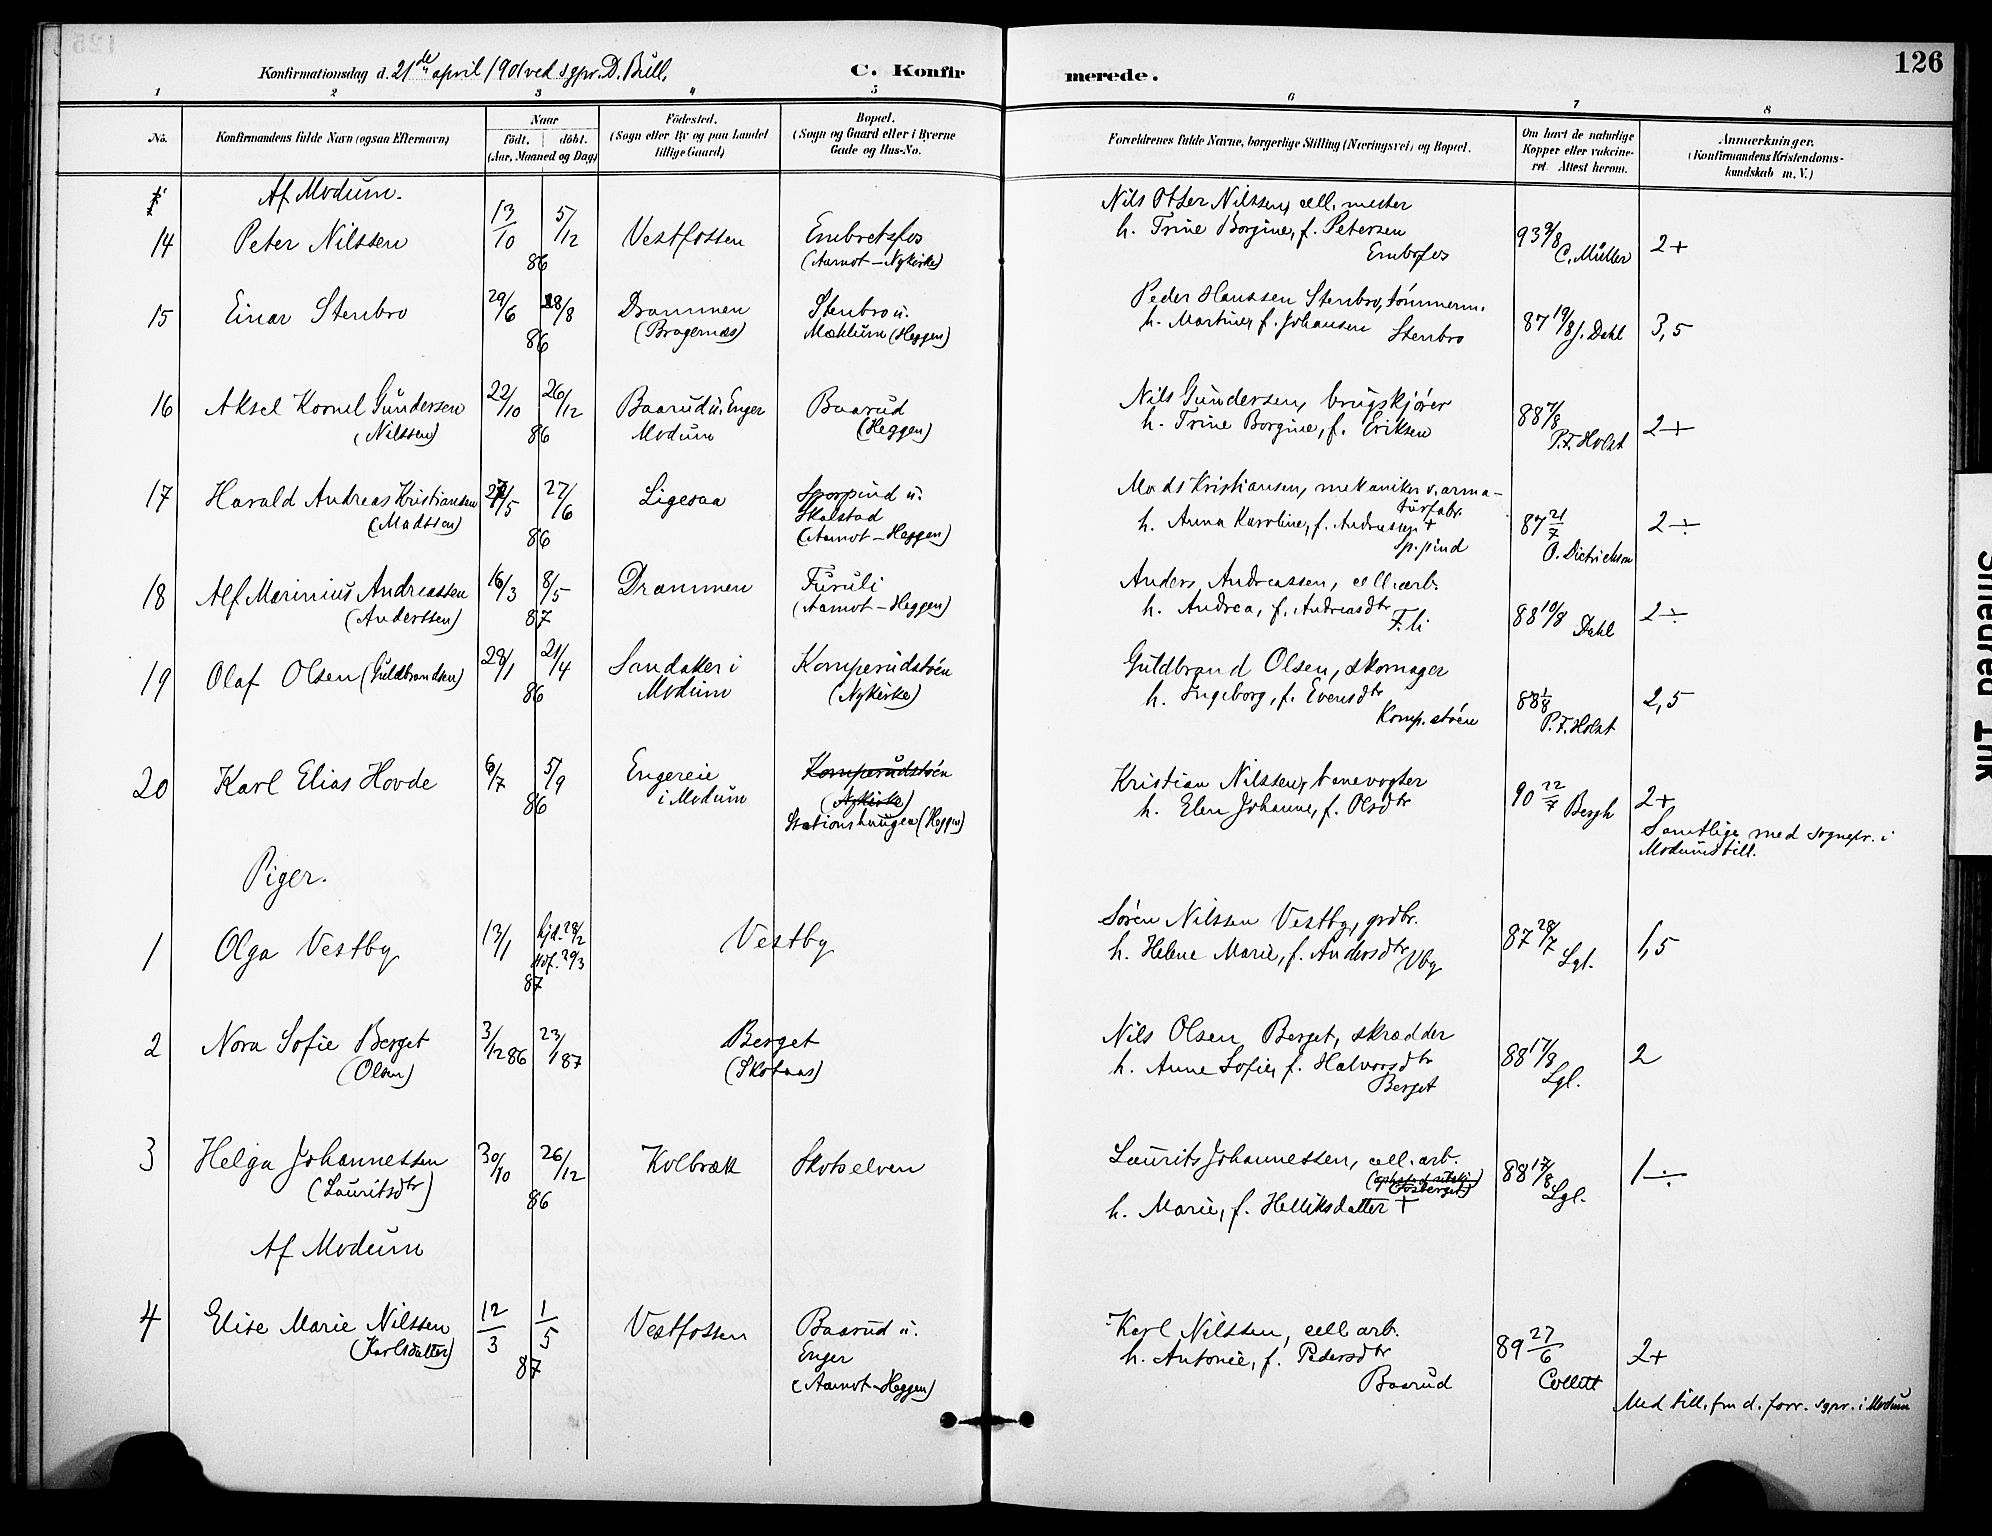 126
Konfirmationsdag d. 21de april 1901 ved sgpr. D. Bull.
C. Konfirmerede.
1 2 3 4 5 6 7 8
No.
Konfirmandens fulde Navn (ogsaa Efternavn)
Naar
födt. döbt.
(Aar, Maaned og Dag)
Födested.
(Sogn eller By og paa Landet
tillige Gaard)
Bopæl.
(Sogn og Gaard eller i Byerne
Gade og Hus-No.
Forældrenes fulde Navne, borgerlige Stilling (Næringsvei) og Bopæl.
Om havt de naturlige
Kopper eller vakcine-
ret. Attest herom.
Anmærkninger.
(Konfirmandens Kristendoms-
kundskab m. V.)
Af Modum.
14 Peter Nilssen 13/10 5/12 86 Vestfossen Embretsfos
(Aamot - Nykirke)
Nils Otter Nilssen, cell. mester
h. Trine Borgine, f. Petersen
Embrfos
93 9/8 C. Müller 2+
15 Einar Stenbro 29/6 28/8 86 Drammen
(Bragernæs)
Stenbro u.
Mælum (Heggen)
Peder Hanssen Stenbro, tømmerm.
h. Martine, f. Johansen Stenbro
87 19/8 J. Dahl 3,5
16 Aksel Kornel Gundersen
(Nilssen)
22/10 26/12 86
Baarud u. Enger
Modum
Baarud
(Heggen)
Nils Gundersen, brugskjører
h. Trine Borgine, f. Eriksen
88 7/8 P.F. Holst 2+
17 Harald Andreas Kristiansen
(Madssen)
/5 27/6 86
Ligeraa
Sporpind u.
Skalstad
(Aamot - Heggen)
Mads Kristiansen, mekaniker v. arma-
turfabr.
h. Anna Karoline, f. Andreassen +
Sp.pind
87 21/7 O. Dietrichson 2÷
18 Alf Marinius Andreassen
(Anderssen)
16/3 8/5 87
Drammen
Furuli
(Aamot - Heggen)
Anders Andreassen, cell. arb.
h. Andrea, f. Andreasdtr
F.li
88 10/8 Dahl 2÷
19 Olaf Olsen (Guldbrandsen) 28/1 21/4 86
Sandaker i
Modum
Komperudstøen
(Nykirke)
Guldbrand Olsen, skomager
h. Ingeborg, f. Evensdtr
Komp.støen
88 1/8 P.F. Holst 2,5
20 Karl Elias Hovde 6/7 5/9 86
Engereie
i Modum
Komperudstøen
(Nykirke)
Stationshaugen (Heggen)
Kristian Nilssen, banevogter
h. Elen Johanne, f. Olsdtr
90 22/7 Bergh 2+
Samtlige med sognepr. i
Modums till.
Piger.
1 Olga Vestby 13/1 hjd. 28/2
87
Vestby
Søren Nilssen Vestby, grdbr.
h. Helene Marie, f. Andersdtr Vby
87 28/7 Lgl. 1,5
2 Nora Sofie Berget
(Olsen)
3/12 86 23/1 87
Berget
(Skotaas)
Nils Olsen Berget, skrædder
h. Anne Sofie, f. Halvorsdtr
Berget
88 17/8 Lgl. 2
3 Helga Johannessen
(Lauritsdtr)
30/10 26/12 86
Kolbræk Skotselven
Laurits Johannessen, cell. arb.
h. Marie, f. Helliksdatter +
88 17/8 Lgl. 1÷
Af Modum
4 Elise Marie Nilssen
(Karlsdatter)
12/3 1/5 87
Vestfossen
Baarud u.
Enger
(Aamot - Heggen)
Karl Nilssen, cell. arb.
h. Antonie, f. Pedersdtr
Baarud
89 27/6 Collett 2+
Med till. fra d. forr. sgpr. i Modum